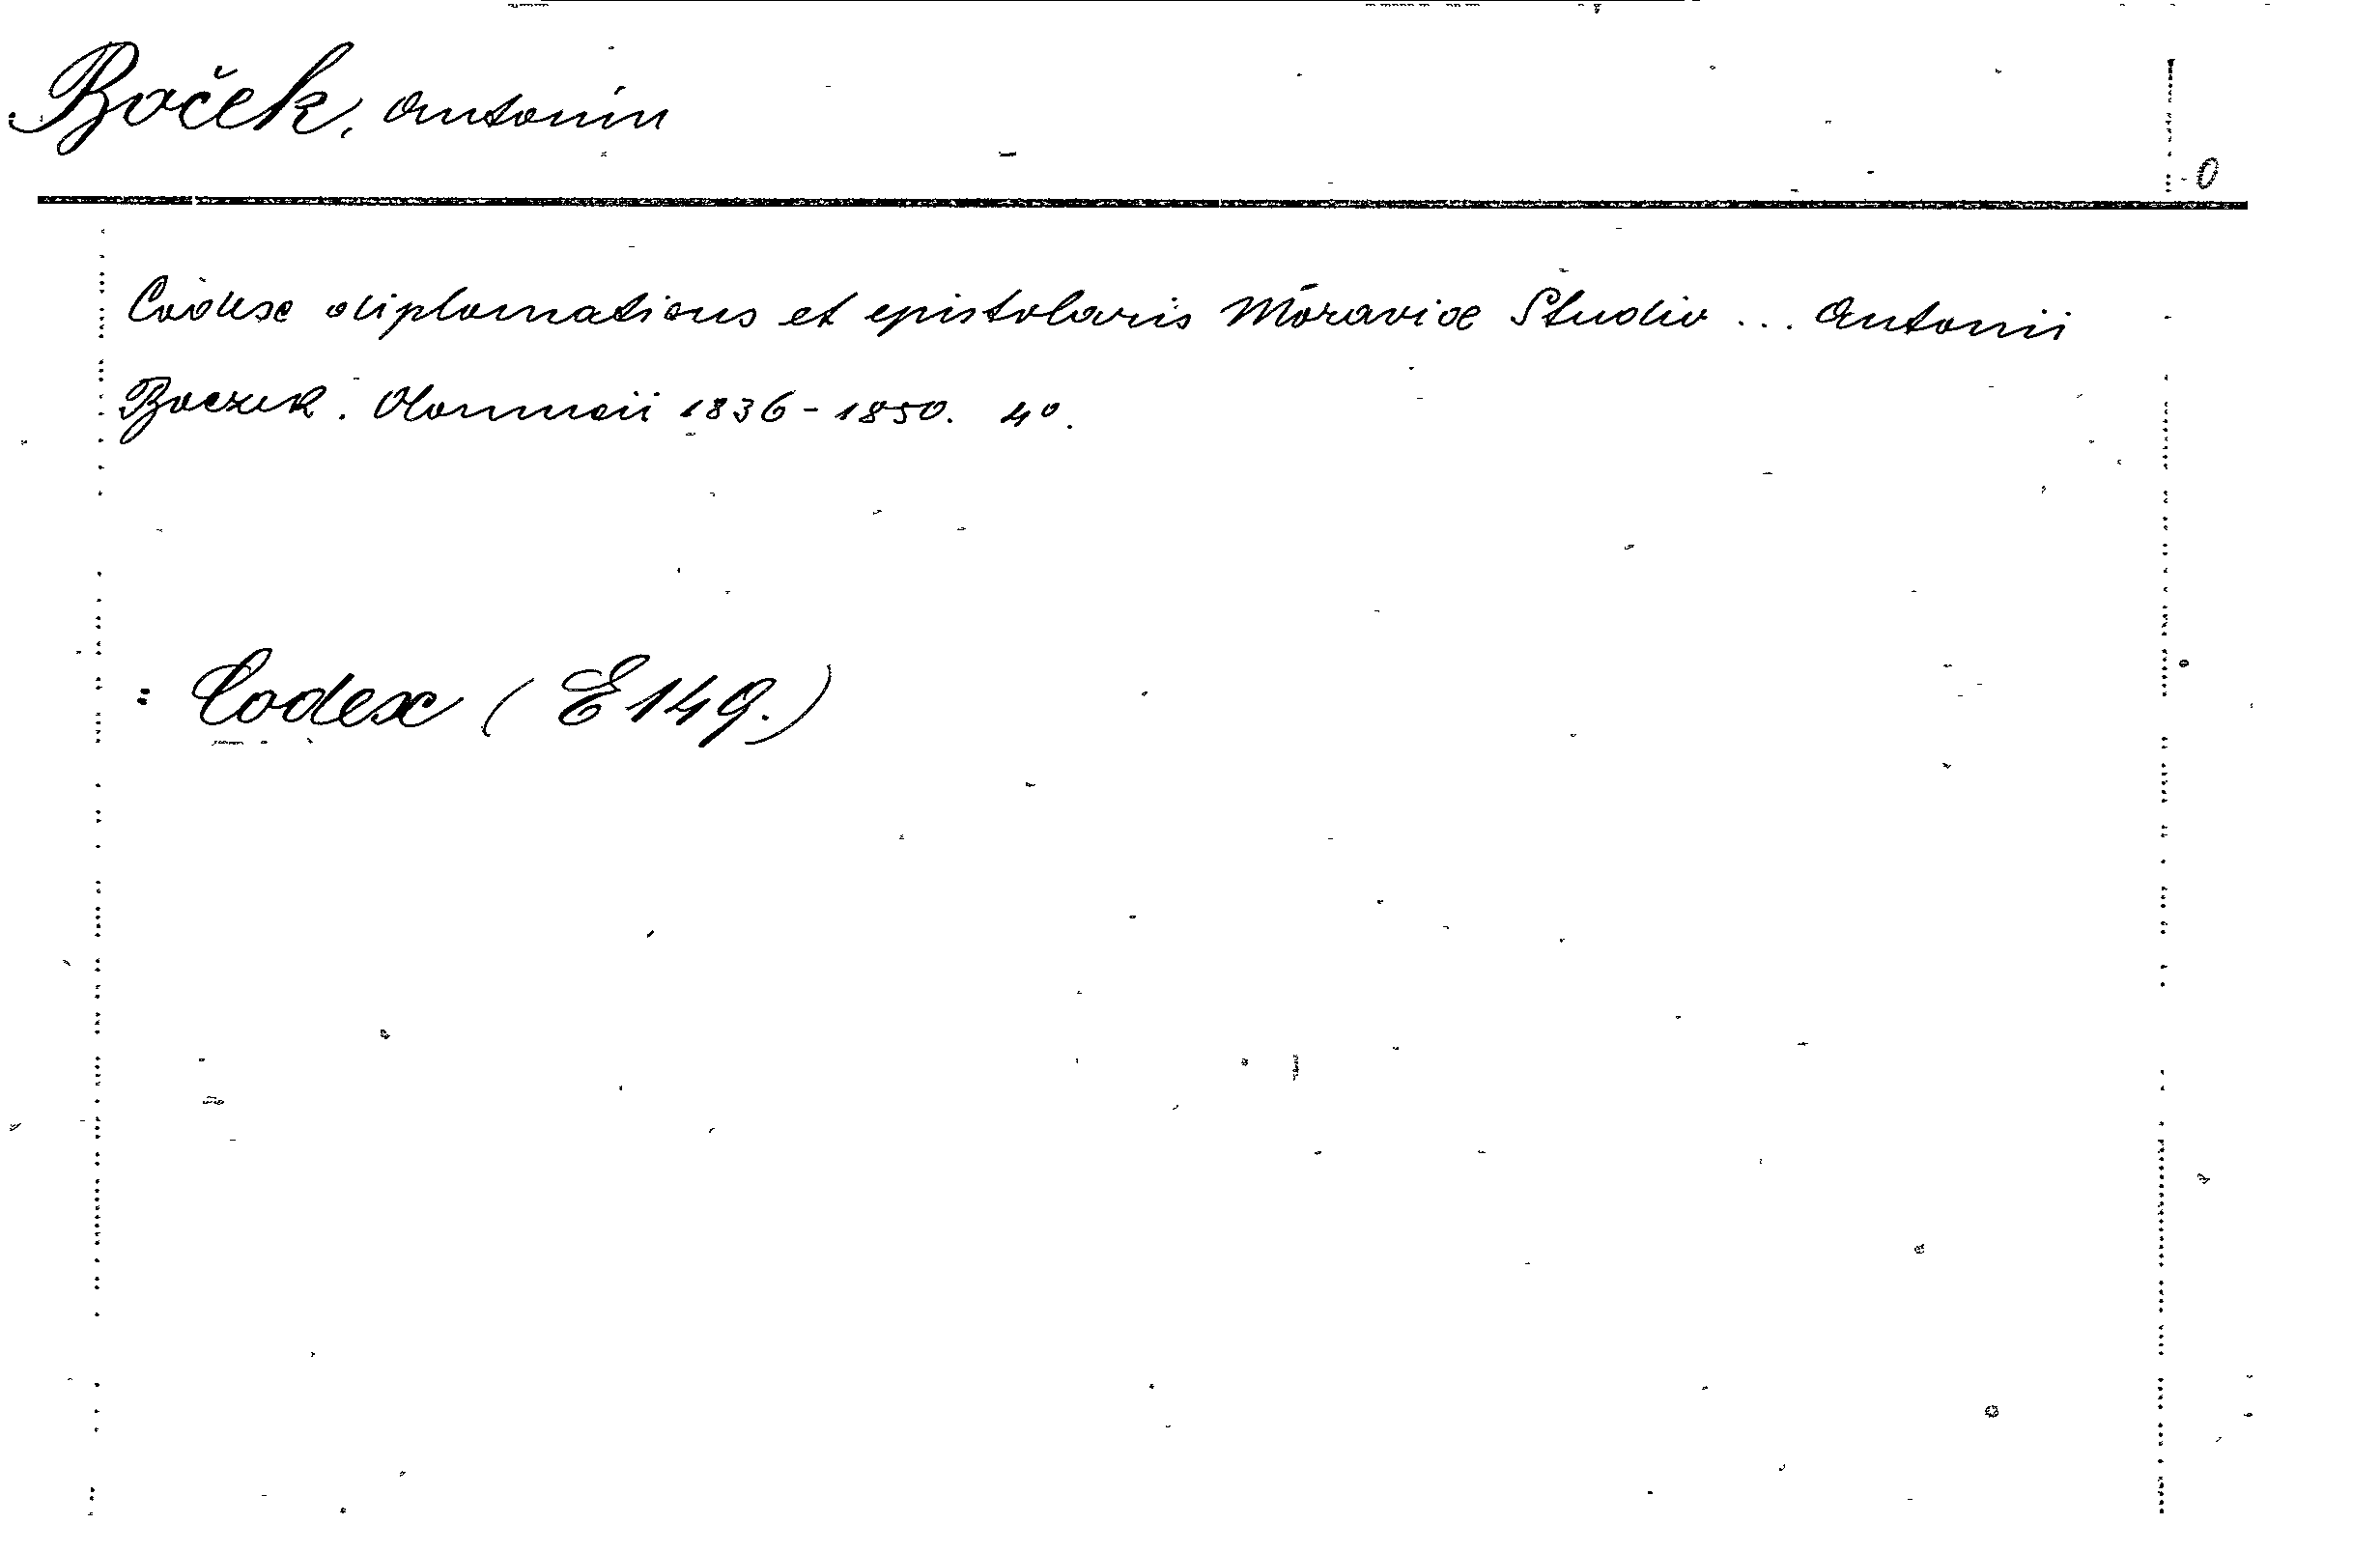 Boček, Antonín
0
Codex diplomaticus et epistolaris Moraviae Studio ... Antonii
Boczek. Olomucii 1836-1850. 4°.
: Codex (E149.)